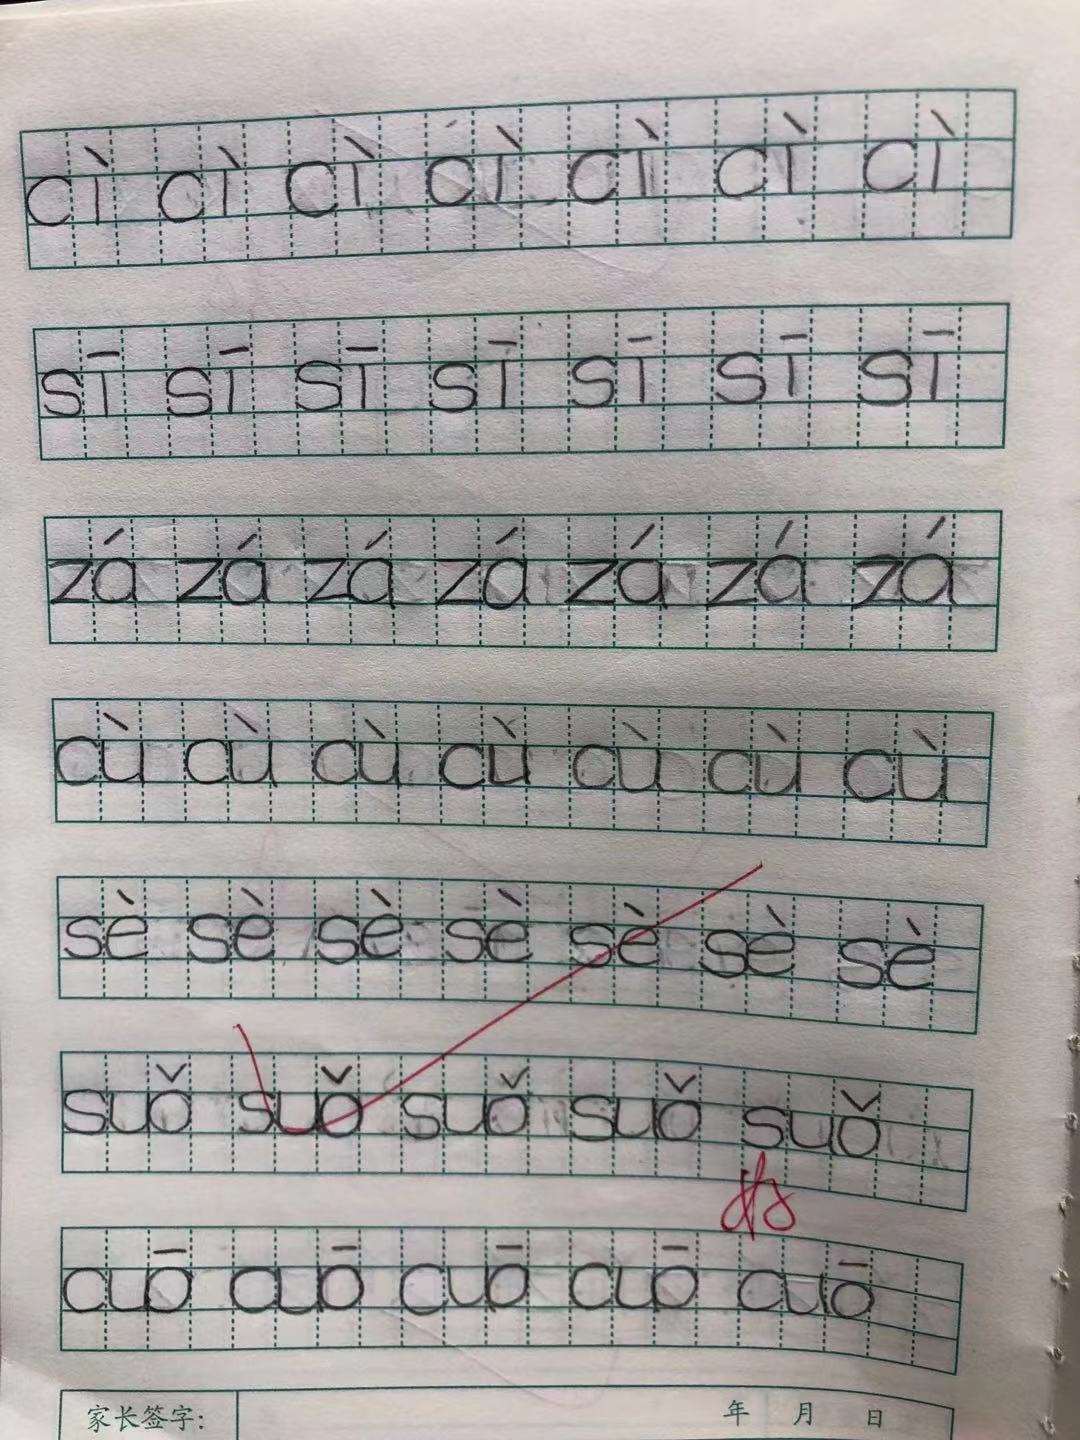 cì cì cì cì cì cì cì
sī sī sī sī sī sī sī
zá zá zá zá zá zá zá
cù cù cù cù cù cù cù
sè sè sè sè sè sè sè
suǒ suǒ suǒ suǒ suǒ
好
cuō cuō cuō cuō cuō
家长签字: 年 月 日